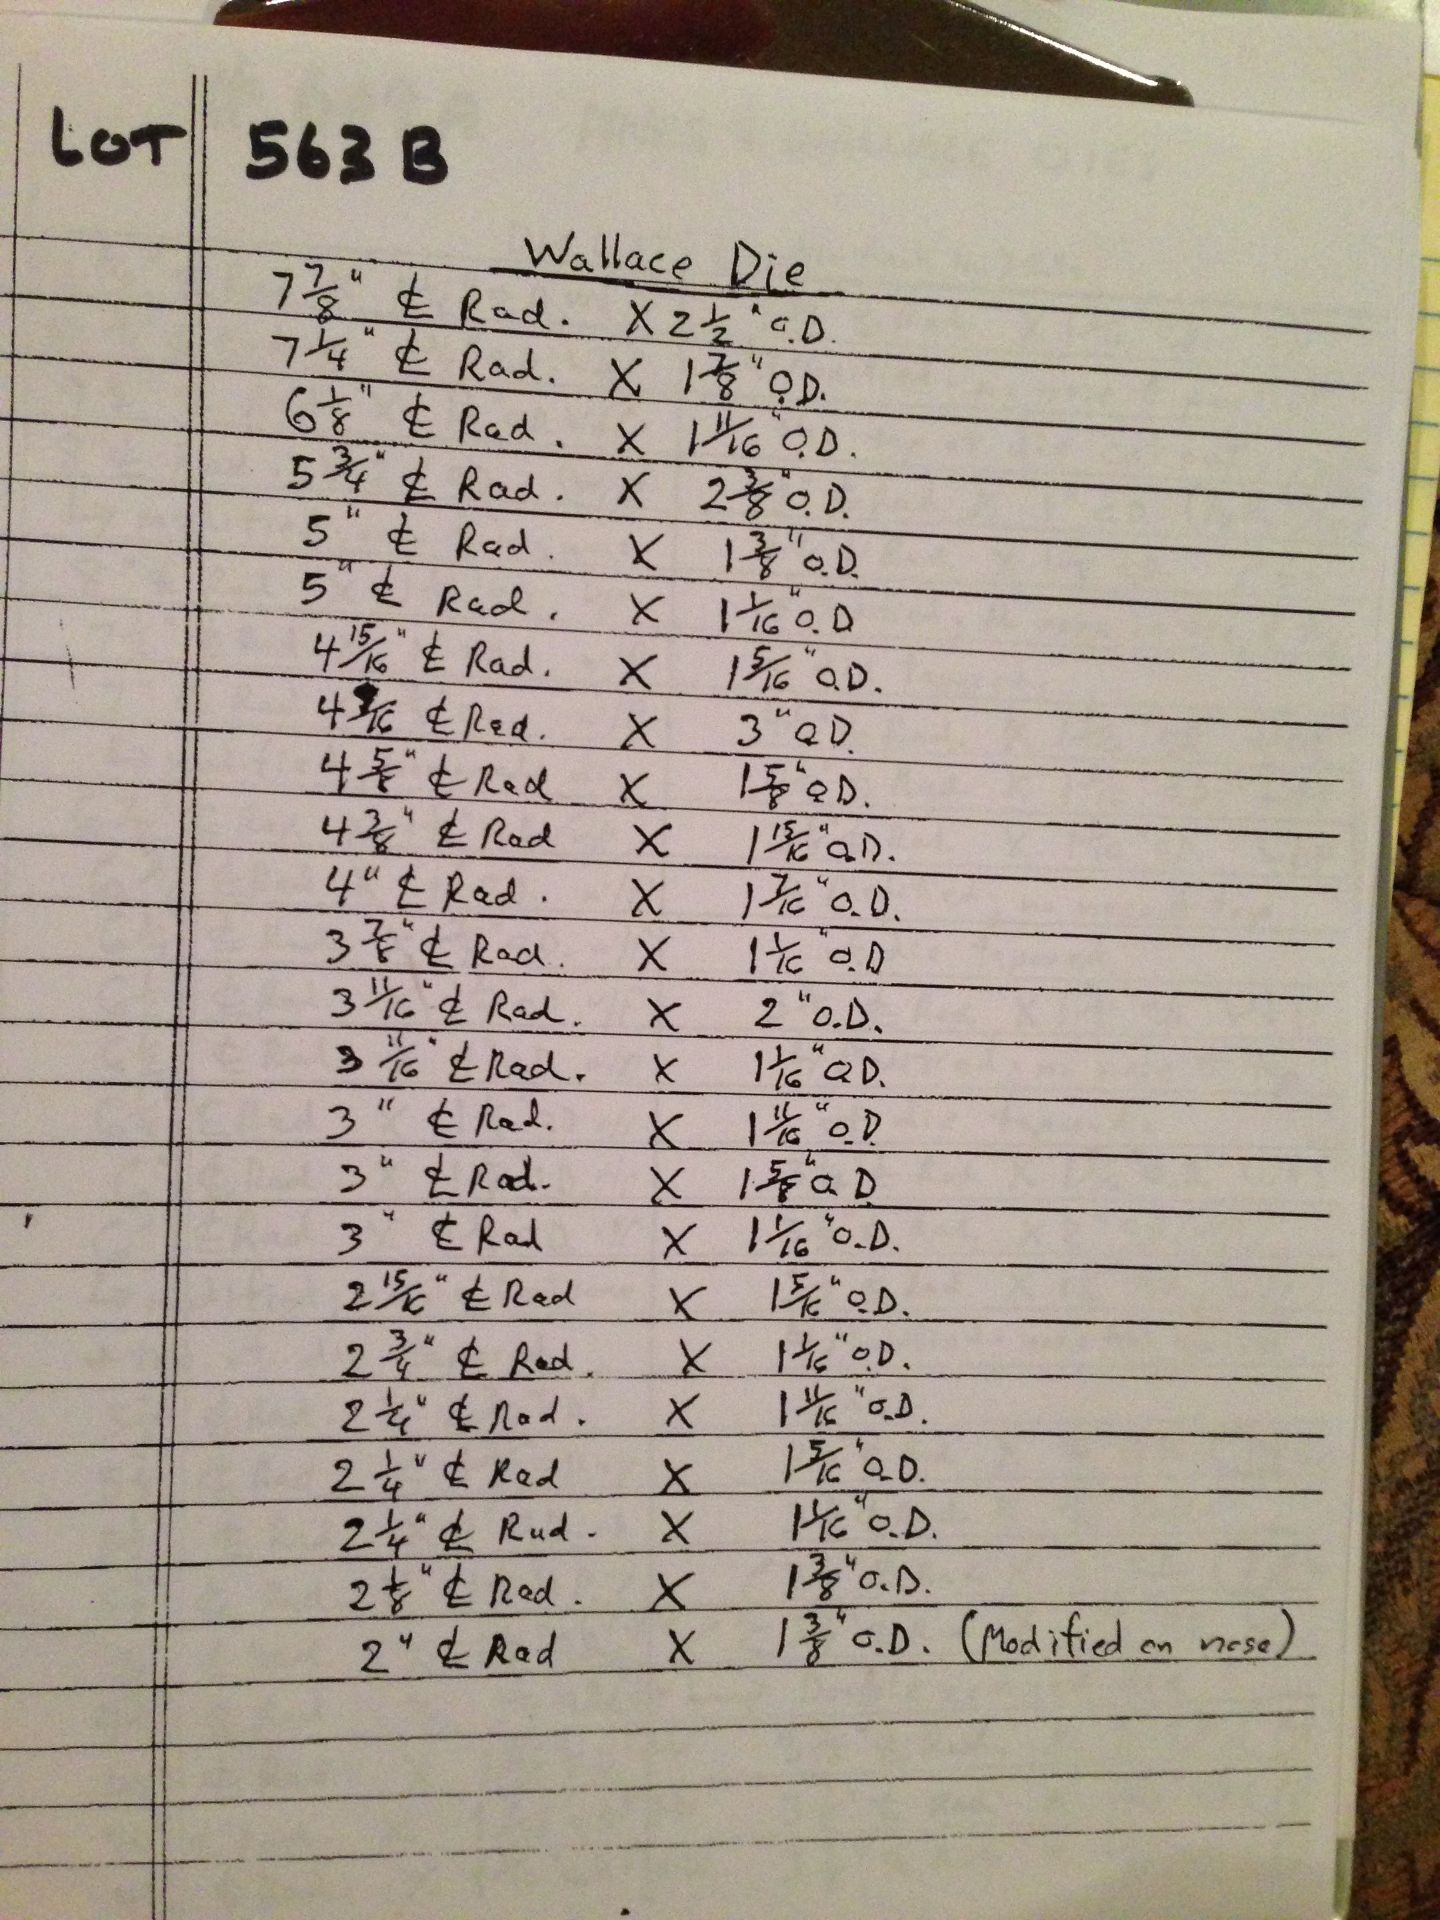 LOT 563 B
Wallace Die
7 7/8" ℄ Rad. X 2 1/2" O.D.
7 1/4" ℄ Rad. X 1 7/8" O.D.
6 1/8" ℄ Rad. X 1 11/16" O.D.
5 3/4" ℄ Rad. X 2 3/8" O.D.
5" ℄ Rad. X 1 3/8" O.D.
5" ℄ Rad. X 1 1/16" O.D
4 15/16" ℄ Rad. X 1 5/16" O.D.
4 ℄ Rad. X 3" O.D.
4 5/8" ℄ Rad X 1 5/8" O.D.
4 3/8" ℄ Rad X 1 15/16" O.D.
4" ℄ Rad. X 1 7/16" O.D.
3 7/8" ℄ Rad. X 1 1/16" O.D
3 11/16" ℄ Rad. X 2" O.D.
3 11/16" ℄ Rad. X 1 1/16" O.D.
3" ℄ Rad. X 1 11/16" O.D
3" ℄ Rad. X 1 5/8" O.D
3" ℄ Rad X 1 1/16" O.D.
2 15/16" ℄ Rad X 1 5/16" O.D.
2 3/4" ℄ Rad. X 1 1/16" O.D.
2 1/4" ℄ Rad. X 1 11/16" O.D.
2 1/4" ℄ Rad X 1 5/16" O.D.
2 1/4" ℄ Rad. X 1 1/16" O.D.
2 1/8" ℄ Rad. X 1 3/8" O.D.
2" ℄ Rad X 1 3/8" O.D. (Modified on nose)